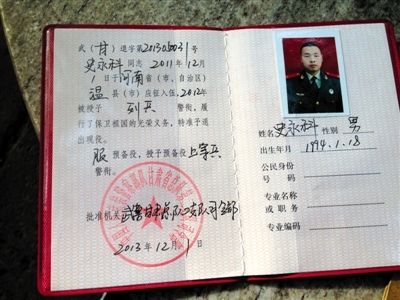 武(甘)退字第20130031号
史永科同志 2011年12月
1日于河南省(市、自治区)
温县(市)应征入伍,2012年
被授予 列兵 警衔,履
行了保卫祖国的光荣义务,特准予退
出现役。
服预备役,授予预备役上等兵
警衔。
批准机关
2013年12月1日
姓名 史永科 性别 男
出生年月 1994.1.18
公民身份
号码
专业名称
或职务
专业编码